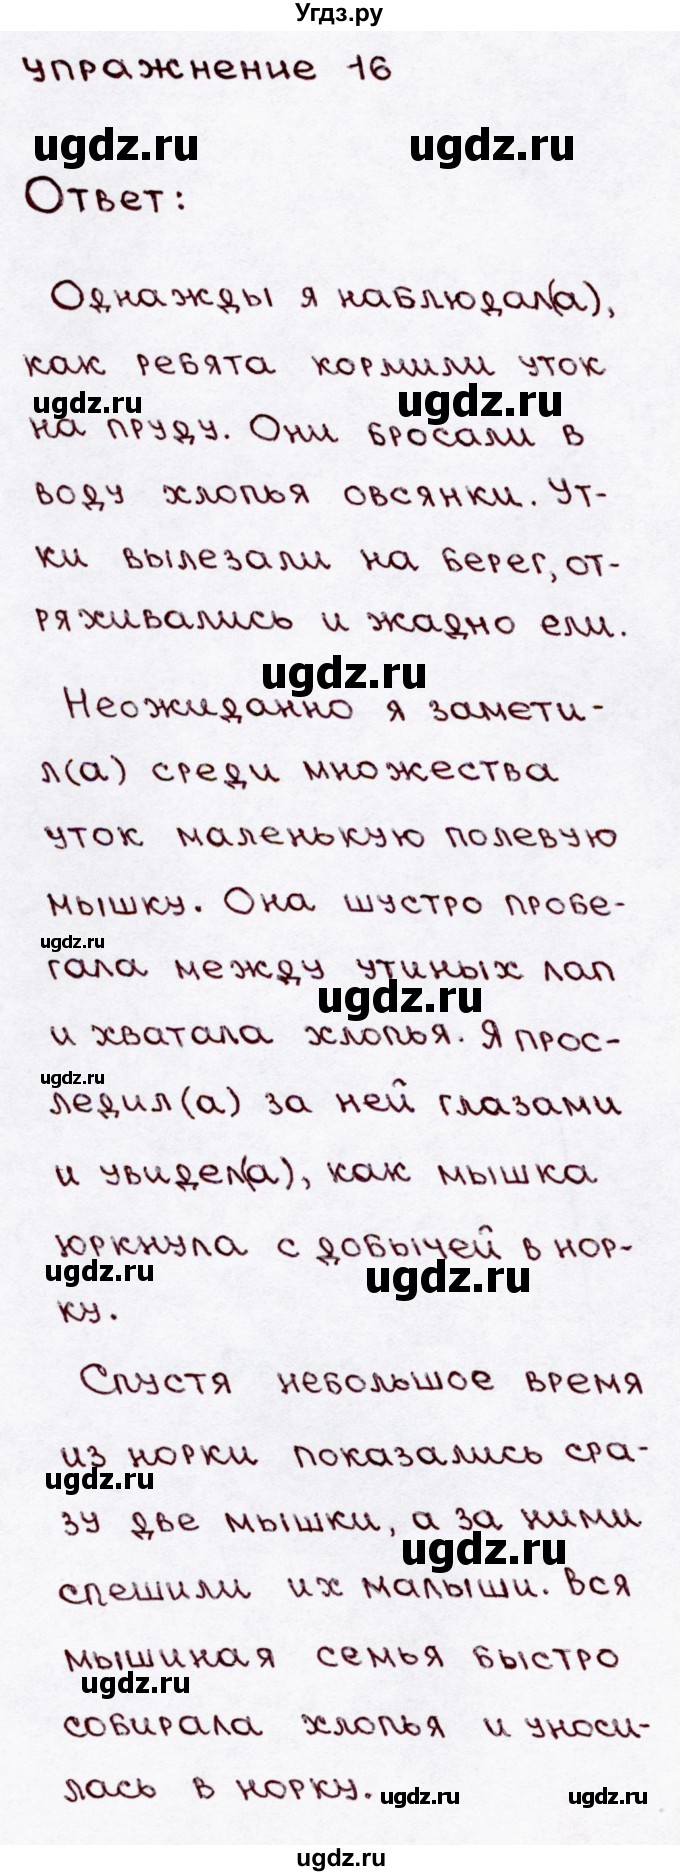 Угдз.ру
упражнение 16
ugdz.ru ugdz.ru
Ответ:
Однажды я наблюдал(а),
как ребята кормили уток
ugdz.ru ugdz.ru
на пруду. Они бросали в
воду хлопья овсянки. Ут-
ки вылезали на берег, от-
ряхивались и жадно ели.
ugdz.ru
Неожиданно я замети-
л(а) среди множества
уток маленькую полевую
мышку. Она шустро пробе-
ugdz.ru
гала между утиных лап
ugdz.ru
и хватала хлопья. Я прос-
ugdz.ru
ледил(а) за ней глазами
и увидел(а), как мышка
юркнула с добычей в нор-
ugdz.ru ugdz.ru
ку.
Спустя небольшое время
из норки показались сра-
ugdz.ru
зу две мышки, а за ними
ugdz.ru
спешили их малыши. Вся
мышиная семья быстро
ugdz.ru
собирала хлопья и уноси-
лась в норку.
ugdz.ru ugdz.ru
ugdz.ru